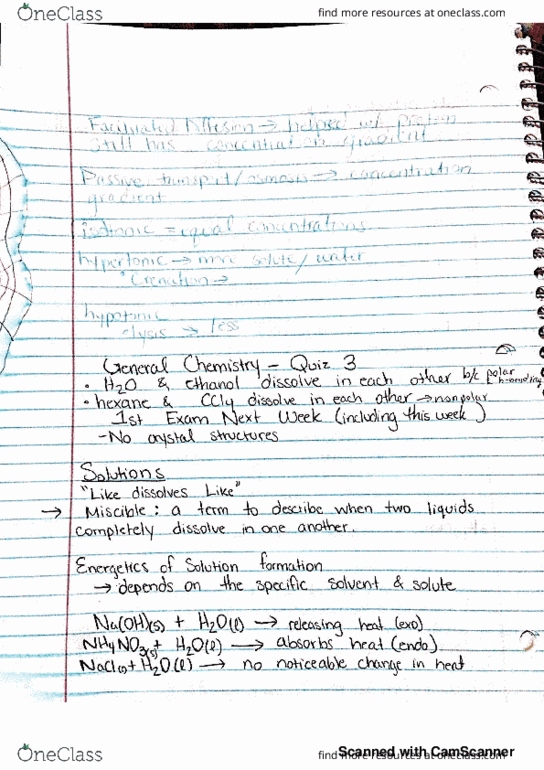 OneClass
find more resources at oneclass.com
Facilitated Diffusion → helped w/ protein
still has concentration gradient
Passive transport/osmosis → concentration
gradient
isotonic = equal concentrations
hypertonic → more solute/water
Crenation →
hypotonic
lysis → less
General Chemistry - Quiz 3
• H2O & ethanol dissolve in each other b/c polar
h-bonding
• hexane & CCl4 dissolve in each other → nonpolar
1st Exam Next Week (including this week)
-No crystal structures
Solutions
"Like dissolves Like"
→ Miscible: a term to describe when two liquids
completely dissolve in one another.
Energetics of Solution formation
→ depends on the specific solvent & solute
Na(OH)(s) + H2O(l) → releasing heat (exo)
NH4NO3(s) + H2O(l) → absorbs heat (endo)
NaCl(s) + H2O(l) → no noticeable change in heat
OneClass
find more resources at oneclass.com
Scanned with CamScanner